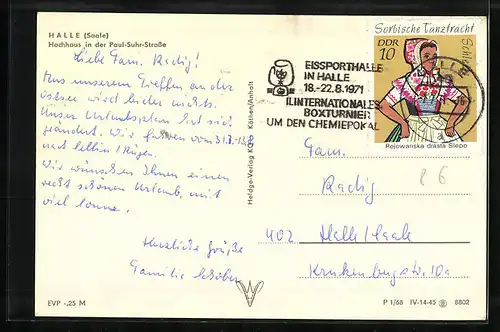 HALLE (Saale)
Hochhaus in der Paul-Suhr-Straße
Liebe Fam. Radig!
Aus unserem Treffen an der
Ostsee wird leider nichts.
Unser Urlaubsplan hat sich
geändert. Wir fahren vom 31.7.-13.8
nach Sellin / Rügen.
Wir wünschen Ihnen einen
recht schönen Urlaub, mit
viel Sonne.
Herzliche Grüße
Familie
EVP -.25 M
Heldge-Verlag KG Köthen/Anhalt
EISSPORTHALLE
IN HALLE
18.-22.8.1971
II.INTERNATIONALES
BOXTURNIER
UM DEN CHEMIEPOKAL
Sorbische Tanztracht
DDR
10
Schleife
Rejowanska drasta Slepo
Fam.
Radig
86
402 Halle/Saale
Krukenbergstr. 10a
P 1/68 IV-14-45 8802